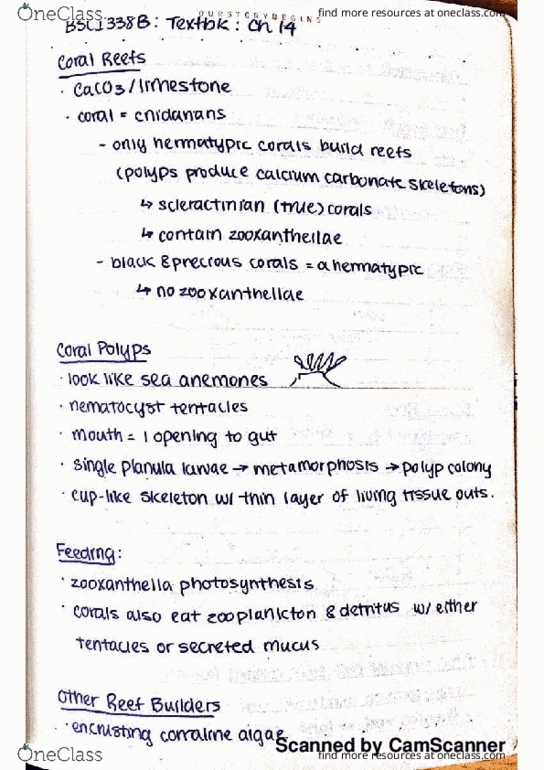 OneClass
OURSTORYBEGINS
find more resources at oneclass.com
BSC1338B: Textbk: Ch 14
Coral Reefs
· CaCO3/limestone
· coral = cnidarians
- only hermatypic corals build reefs
(polyps produce calcium carbonate skeletons)
↳ scleractinian (true) corals
↳ contain zooxanthellae
- black & precious corals = ahermatypic
↳ no zooxanthellae
Coral Polyps
· look like sea anemones
· nematocyst tentacles
· mouth = 1 opening to gut
· single planula larvae → metamorphosis → polyp colony
· cup-like skeleton w/ thin layer of living tissue outs.
Feeding:
· zooxanthella photosynthesis
· corals also eat zooplankton & detritus w/ either
tentacles or secreted mucus
Other Reef Builders
· encrusting corraline algae
Scanned by CamScanner
OneClass
find more resources at oneclass.com